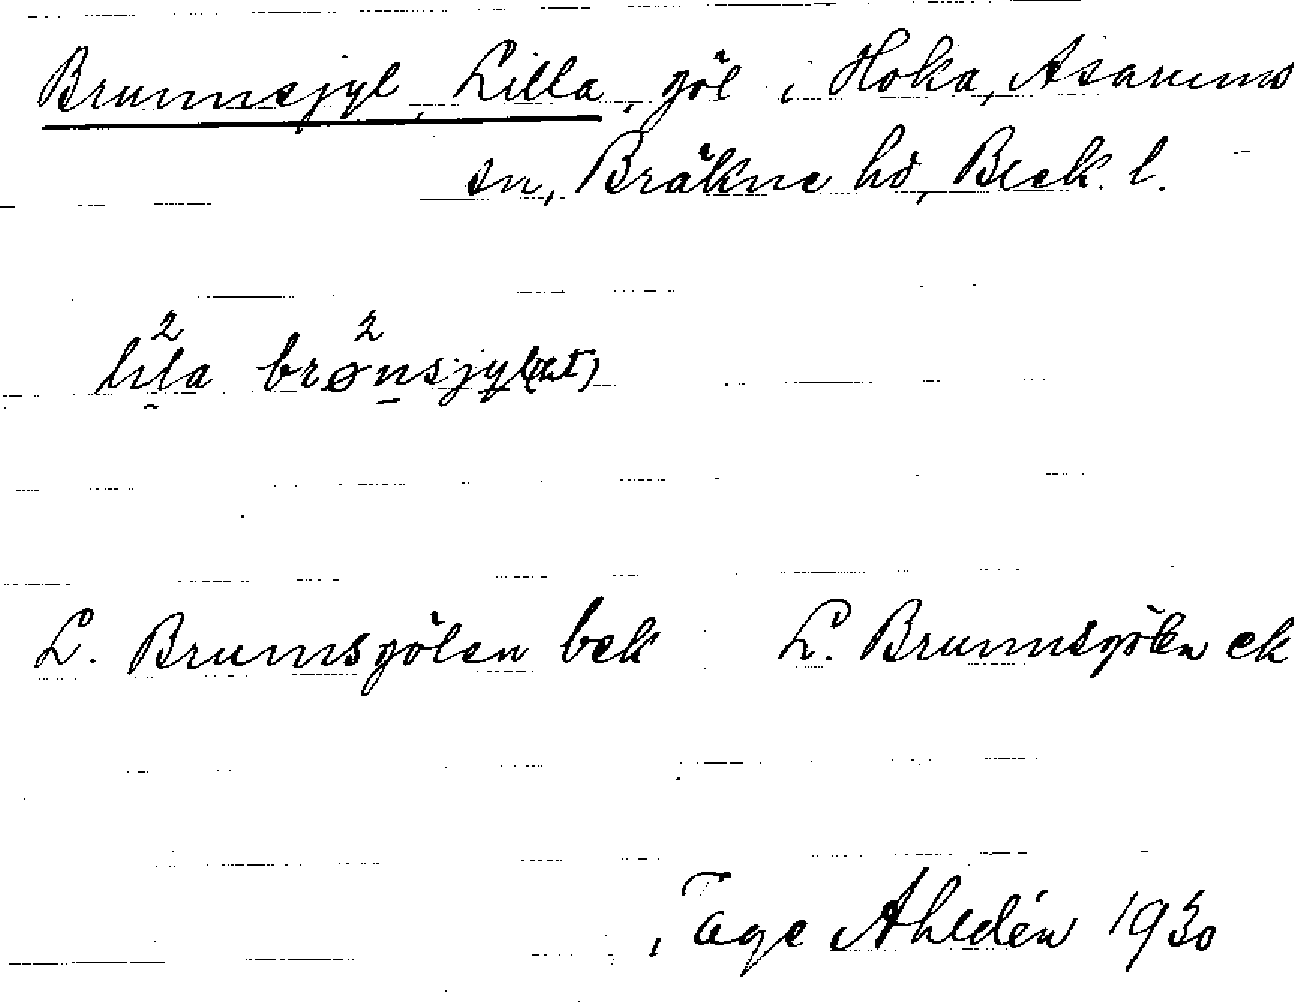 Brunnsjyl, Lilla, göl i Hoka, Asarums
sn, Bräkne hd, Blek. l.
lila brønsjyl(ət)
L. Brunnsgölen bek L. Brunnsgölen ek
Tage Ahldén 1930